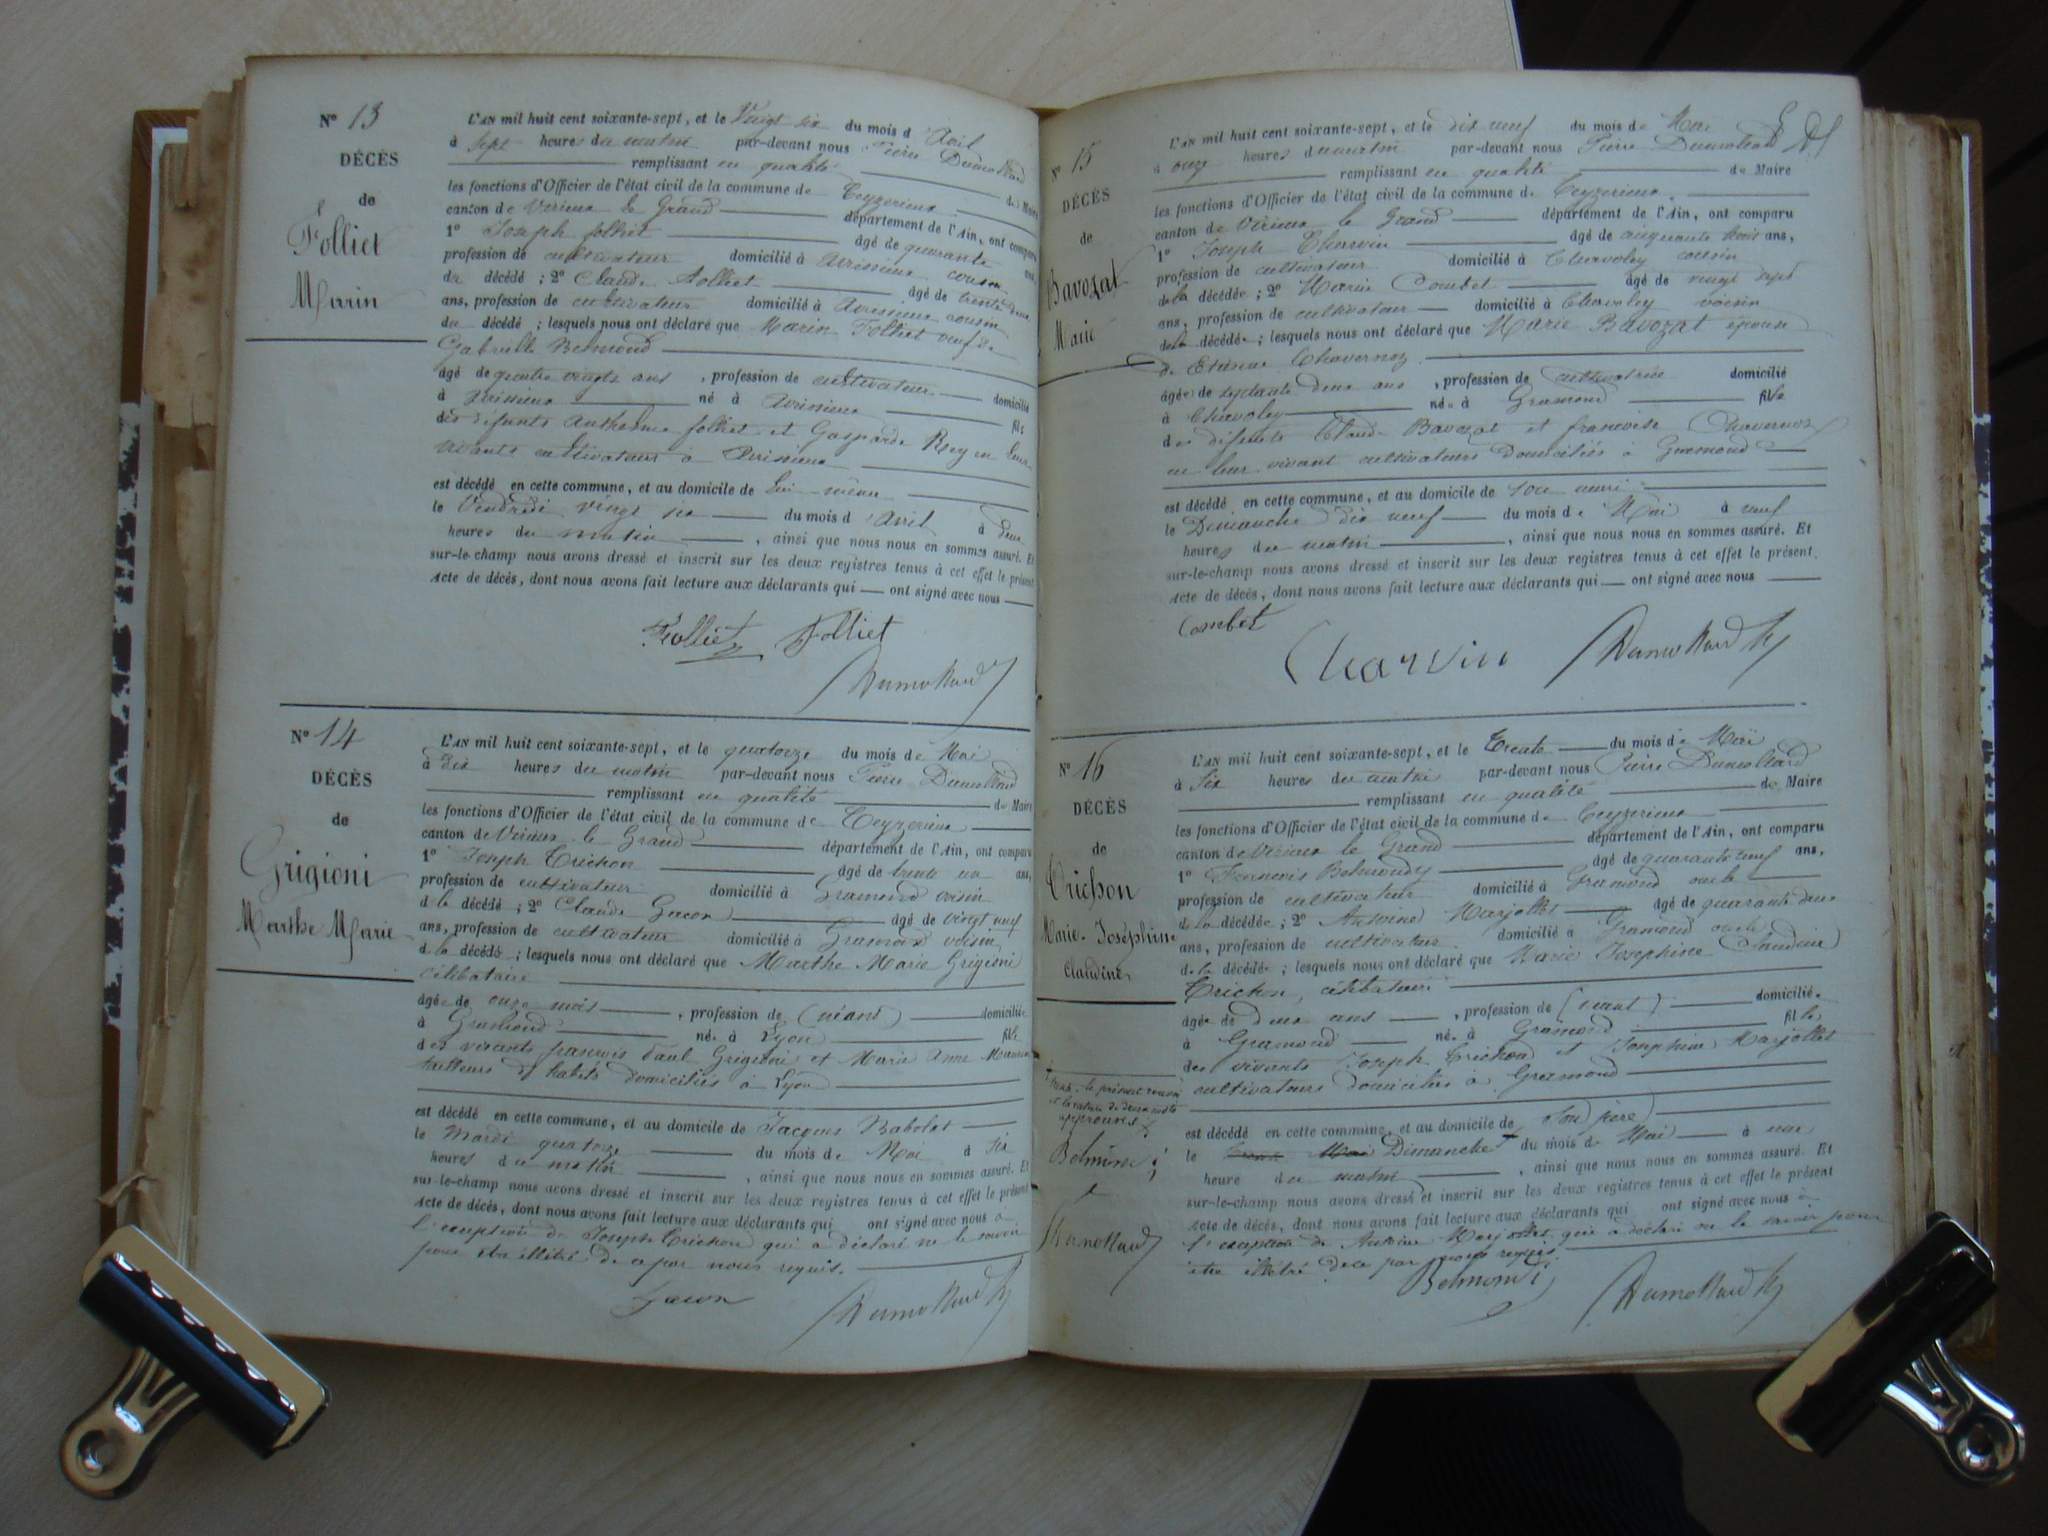 Nº 13
DÉCÈS
de
Folliet
Marin
L'AN mil huit cent soixante-sept, et le Vingt six du mois d'Avril
à Sept heures du matin par-devant nous Pierre Dumollard
remplissant en qualité de Maire
les fonctions d'Officier de l'état civil de la commune de Ceyzerieux
canton de Virieux le Grand département de l'Ain, ont comparu
1º Joseph folliet âgé de quarante ans,
profession de cultivateur domicilié à Avrissieux cousin
du décédé ; 2º Claude folliet âgé de trente deux
ans, profession de cultivateur domicilié à Avrissieux cousin
du décédé ; lesquels nous ont déclaré que Marin Folliet veuf de
Gabrielle Belmond
âgé de quatre vingts ans , profession de cultivateur domicilié
à Avrissieux né à Avrissieux fils
des défunts Anthelme folliet et Gasparde Rey en leur
vivants cultivateurs à Avrissieux
est décédé en cette commune, et au domicile de lui même
le Vendredi vingt six du mois d'avril à deux
heures du matin , ainsi que nous nous en sommes assuré. Et
sur-le-champ nous avons dressé et inscrit sur les deux registres tenus à cet effet le présent
acte de décès, dont nous avons fait lecture aux déclarants qui ont signé avec nous
Folliet Folliet
Dumollard
Nº 14
DÉCÈS
de
Grigioni
Marthe Marie
L'AN mil huit cent soixante-sept, et le quatorze du mois de Mai
à dix heures du matin par-devant nous Pierre Dumollard
remplissant en qualité de Maire
les fonctions d'Officier de l'état civil de la commune de Ceyzerieux
canton de Virieux le Grand département de l'Ain, ont comparu
1º Joseph Trichon âgé de trente un ans,
profession de cultivateur domicilié à Gramond voisin
de la décédé ; 2º Claude Gacon âgé de vingt neuf
ans, profession de cultivateur domicilié à Gramond voisin
de la décédé ; lesquels nous ont déclaré que Marthe Marie Grigioni
célibataire
âgée de onze mois , profession de (néant) domiciliée
à Gramond née à Lyon fille
des vivants françois Paul Grigioni et Marie Anne
tailleurs d'habits domiciliés à Lyon
est décédé en cette commune, et au domicile de Jacques Rabolat
le Mardi quatorze du mois de Mai à six
heures du matin , ainsi que nous nous en sommes assuré. Et
sur-le-champ nous avons dressé et inscrit sur les deux registres tenus à cet effet le présent
acte de décès, dont nous avons fait lecture aux déclarants qui ont signé avec nous à
l'exception de Joseph Trichon qui a déclaré ne le savoir
pour être illétré de ce par nous requis.
Gacon Dumollard
Nº 15
DÉCÈS
de
Bavozat
Marie
L'AN mil huit cent soixante-sept, et le dix neuf du mois de Mai
à onze heures du matin par-devant nous Pierre Dumollard
remplissant en qualité de Maire
les fonctions d'Officier de l'état civil de la commune de Ceyzerieux
canton de Virieux le Grand département de l'Ain, ont comparu
1º Joseph Charvin âgé de cinquante trois ans,
profession de cultivateur domicilié à Chavoley cousin
de la décédée ; 2º Marin Combet âgé de vingt sept
ans, profession de cultivateur domicilié à Chavoley voisin
de la décédée ; lesquels nous ont déclaré que Marie Bavozat épouse
de Etienne Chavernoz
âgée de septante deux ans , profession de cultivatrice domicilié
à Chavoley née à Gramond fille
des défunts Claude Bavozat et francoise Chavernoz
en leur vivant cultivateurs domiciliés à Gramond
est décédé en cette commune, et au domicile de son mari
le Dimanche dix neuf du mois de Mai à neuf
heures du matin , ainsi que nous nous en sommes assuré. Et
sur-le-champ nous avons dressé et inscrit sur les deux registres tenus à cet effet le présent
acte de décès, dont nous avons fait lecture aux déclarants qui ont signé avec nous
Combet
Charvin Dumollard
Nº 16
DÉCÈS
de
Trichon
Marie-Joséphine
Claudine
L'AN mil huit cent soixante-sept, et le Trente du mois de Mai
à Six heures du matin par-devant nous Pierre Dumollard
remplissant en qualité de Maire
les fonctions d'Officier de l'état civil de la commune de Ceyzerieux
canton de Virieux le Grand département de l'Ain, ont comparu
1º Francois Belmondy âgé de quarante neuf ans,
profession de cultivateur domicilié à Gramond oncle
de la décédée ; 2º Antoine Marjollet âgé de quarante deux
ans, profession de cultivateur domicilié à Gramond oncle
de la décédée ; lesquels nous ont déclaré que Marie Josephine Claudine
Trichon, célibataire
âgée de deux ans , profession de (néant) domiciliée
à Gramond née à Gramond fille
des vivants Joseph Trichon et Josephine Marjollet
cultivateurs domiciliés à Gramond
est décédé en cette commune, et au domicile de son père
le Trente Mai Dimanche du mois de Mai à une
heure du matin , ainsi que nous nous en sommes assuré. Et
sur-le-champ nous avons dressé et inscrit sur les deux registres tenus à cet effet le présent
acte de décès, dont nous avons fait lecture aux déclarants qui ont signé avec nous à
l'exception de Antoine Marjollet qui a déclaré ne le savoir pour
être illétré de ce par nous requis
Belmondi Dumollard
le présent renvoi
et la rature de deux mots
approuvés
Belmondi
Dumollard